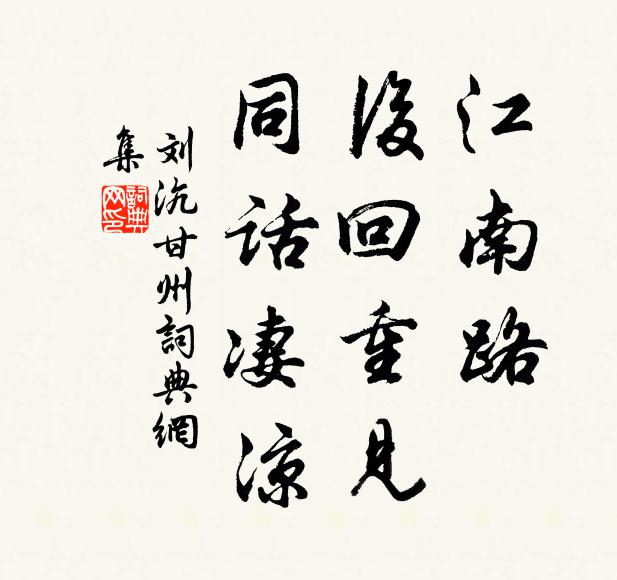 江南路
後回重見
同話凄涼
刘沆甘州詞典網
集
詞典網印